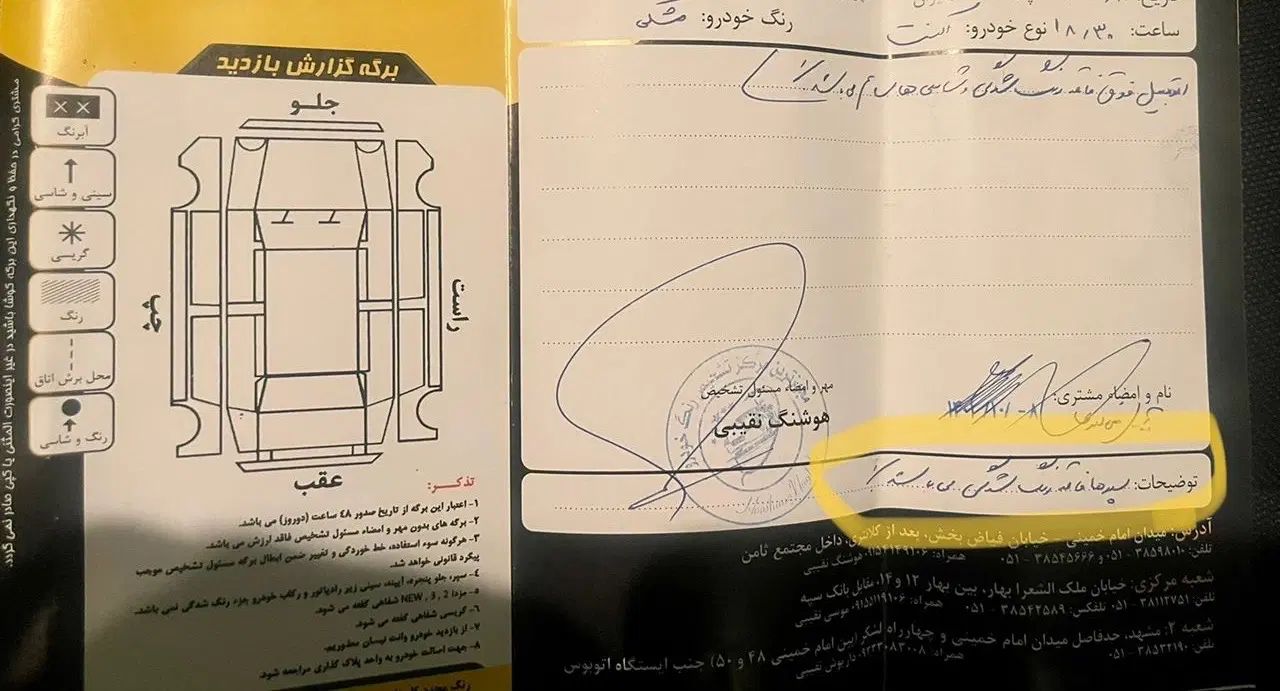 رنگ خودرو: مشکی
ساعت: ۱۸٫۳۰ نوع خودرو: اکسنت
اتومبیل فوق فاقد رنگ شدگی و شاسی ها سالم می باشد
نام و امضاء مشتری:
مهر و امضاء مسئول تشخیص
هوشنگ نقیبی
توضیحات: سپرها فاقد رنگ شدگی می باشد
آدرس: میدان امام خمینی - خیابان فیاض بخش، بعد از کلانتری، داخل مجتمع ثامن
تلفن: ۳۸۵۹۸۰۱۰ - ۰۵۱ و ۳۸۵۴۵۶۶۶ - ۰۵۱ همراه: هوشنگ نقیبی
شعبه مرکزی: خیابان ملک الشعرا بهار، بین بهار ۱۲ و ۱۴، مقابل بانک سپه
تلفن: ۳۸۱۱۲۷۵۱ - ۰۵۱ تلفکس: ۳۸۵۴۲۵۸۹ - ۰۵۱ همراه: ۰۹۱۵۱۱۱۹۱۰۶ موسی نقیبی
شعبه ۲: مشهد، حدفاصل میدان امام خمینی و چهارراه لشگر (بین امام خمینی ۴۸ و ۵۰) جنب ایستگاه اتوبوس
تلفن: ۳۸۵۲۲۱۹۰ - ۰۵۱ همراه: داریوش نقیبی
برگه گزارش بازدید
جلو
چپ
راست
عقب
آبرنگ
سینی و شاسی
گریسی
رنگ
محل برش اتاق
رنگ و شاسی
مشتری گرامی در حفظ و نگهداری این برگه کوشا باشید در غیر اینصورت المثنی یا کپی صادر نمی گردد.
تذکر:
۱- اعتبار این برگه از تاریخ صدور ۴۸ ساعت (دوروز) می باشد.
۲- برگه های بدون مهر و امضاء مسئول تشخیص فاقد ارزش می باشد.
۳- هرگونه سوء استفاده، خط خوردگی و تغییر ضمن ابطال برگه مسئول تشخیص موجب
پیگرد قانونی خواهد شد.
۴- سپر، جلو پنجره، آیینه، سینی زیر رادیاتور و رکاب خودرو جزء رنگ شدگی نمی باشد.
۵- مزدا 2 , 3 , NEW شفاهی گفته می شود.
۶- گریسی شفاهی گفته می شود.
۷- از بازدید خودرو وانت نیسان معذوریم.
۸- جهت اصالت خودرو به واحد پلاک گذاری مراجعه شود.